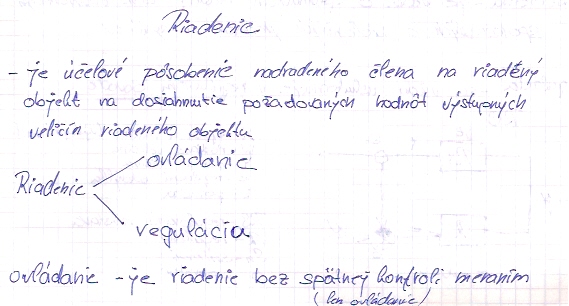 Riadenie
- je účelové pôsobenie nadradeného člena na riadený
objekt na dosiahnutie požadovaných hodnôt výstupných
veličín riadeného objektu
ovládanie
Riadenie
regulácia
ovládanie - je riadenie bez spätnej kontroli meraním
(len ovládanie)